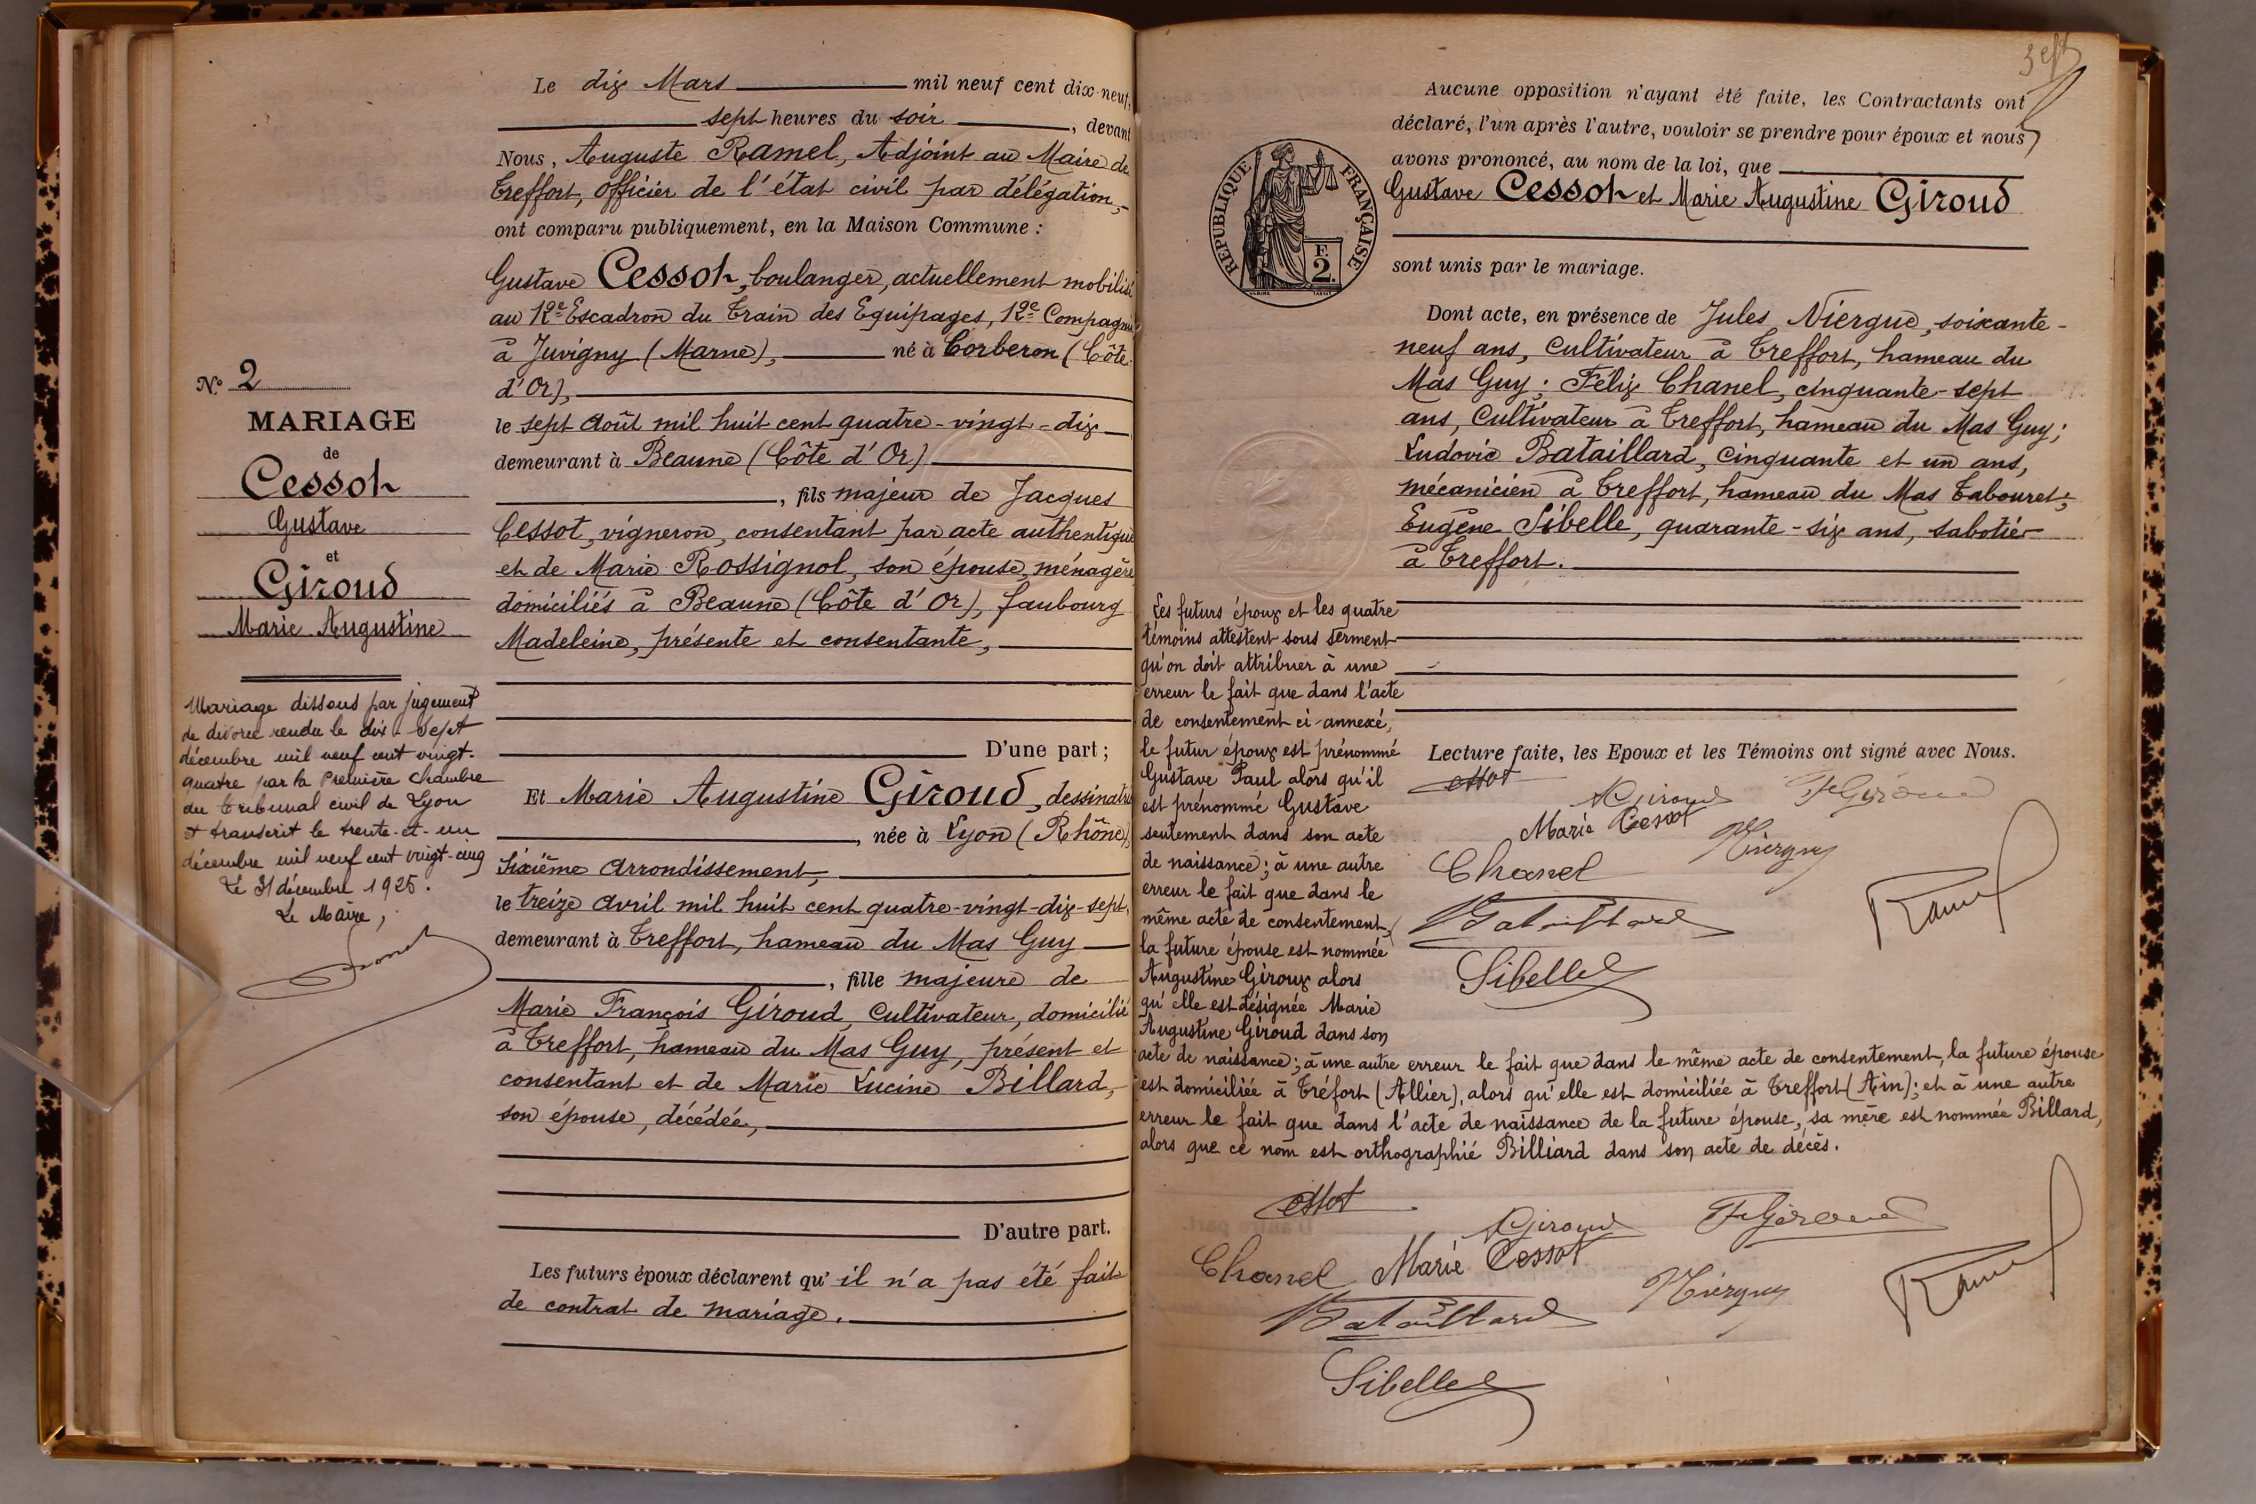 Le dix Mars mil neuf cent dix-neuf,
sept heures du soir, devant
Nous, Auguste Ramel, Adjoint au Maire de
Treffort, officier de l'état civil par délégation,
ont comparu publiquement, en la Maison Commune :
Gustave Cessot, boulanger, actuellement mobilisé
au 12e Escadron du Train des Equipages, 12e Compagnie
à Juvigny (Marne), né à Corberon (Côte-
d'Or),
le sept Août mil huit cent quatre-vingt-dix
demeurant à Beaune (Côte d'Or)
, fils majeur de Jacques
Cessot, vigneron, consentant par acte authentique
et de Marie Rossignol, son épouse, ménagère
domiciliés à Beaune (Côte d'Or), faubourg
Madeleine, présente et consentante,
D'une part ;
Et Marie Augustine Giroud, dessinatrice
, née à Lyon (Rhône),
Sixième Arrondissement,
le treize Avril mil huit cent quatre-vingt-dix-sept,
demeurant à Treffort, hameau du Mas Guy
, fille majeure de
Marie François Giroud, Cultivateur, domicilié
à Treffort, hameau du Mas Guy, présent et
consentant et de Marie Lucine Billard,
son épouse, décédée,
D'autre part.
Les futurs époux déclarent qu'il n'a pas été fait
de contrat de mariage.
N° 2
MARIAGE
de
Cessot
Gustave
et
Giroud
Marie Augustine
Mariage dissous par jugement
de divorce rendu le dix-sept
décembre mil neuf cent vingt-
quatre par la Première chambre
du tribunal civil de Lyon
et transcrit le trente-et-un
décembre mil neuf cent vingt-cinq
Le 31 décembre 1925.
Le Maire,
Aucune opposition n'ayant été faite, les Contractants ont
déclaré, l'un après l'autre, vouloir se prendre pour époux et nous
avons prononcé, au nom de la loi, que
Gustave Cessot et Marie Augustine Giroud
sont unis par le mariage.
REPUBLIQUE FRANÇAISE
F.
2.
Dont acte, en présence de Jules Niergue, soixante-
neuf ans, Cultivateur à Treffort, hameau du
Mas Guy ; Félix Chanel, cinquante-sept
ans, Cultivateur à Treffort, hameau du Mas Guy ;
Ludovic Bataillard, cinquante et un ans,
mécanicien à Treffort, hameau du Mas Tabouret ;
Eugène Sibelle, quarante-six ans, sabotier
à Treffort.
Lecture faite, les Epoux et les Témoins ont signé avec Nous.
Giroud
F Giroud
Marie Cessot
Niergue
Chanel
Bataillard
Ramel
Sibelle
Les futurs époux et les quatre
témoins attestent sous serment
qu'on doit attribuer à une
erreur le fait que dans l'acte
de consentement ci-annexé,
le futur époux est prénommé
Gustave Paul alors qu'il
est prénommé Gustave
seulement dans son acte
de naissance ; à une autre
erreur le fait que dans le
même acte de consentement,
la future épouse est nommée
Augustine Giroux alors
qu'elle est désignée Marie
Augustine Giroud dans son
acte de naissance ; à une autre erreur le fait que dans le même acte de consentement, la future épouse
est domiciliée à Tréfort (Allier), alors qu'elle est domiciliée à Treffort (Ain) ; et à une autre
erreur le fait que dans l'acte de naissance de la future épouse, sa mère est nommée Billard,
alors que ce nom est orthographié Billiard dans son acte de décès.
Giroud
F Giroud
Chanel Marie Cessot
Niergue
Bataillard
Ramel
Sibelle